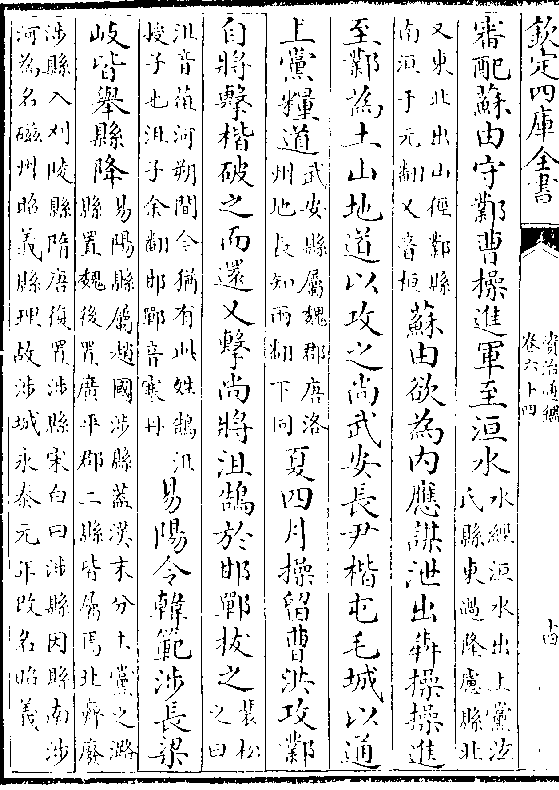 欽定四庫全書
資治通鑑
卷六十四
審配蘇由守鄴曹操進軍至洹水
水經洹水出上黨泫
氏縣東過隆慮縣北
又東北出山徑鄴縣
南洹于元翻又音桓
蘇由欲為内應謀泄出犇操操進
至鄴為土山地道以攻之尚武安長尹楷屯毛城以通
上黨糧道
武安縣屬魏郡唐洛
州地長知兩翻下同
夏四月操留曹洪攻鄴
自將擊楷破之而還又擊尚將沮鵠於邯鄲拔之
裴松
之曰
沮音葅河朔間今猶有此姓鵠沮
授子也沮子余翻邯鄲音寒丹
易陽令韓範涉長梁
岐皆舉縣降
易陽縣屬趙國涉縣蓋漢末分上黨之潞
縣置魏後置廣平郡二縣皆屬焉北齊廢
涉縣入刈陵縣隋唐復置涉縣宋白曰涉縣因縣南涉
河為名磁州昭義縣理故涉城永泰元年改名昭義